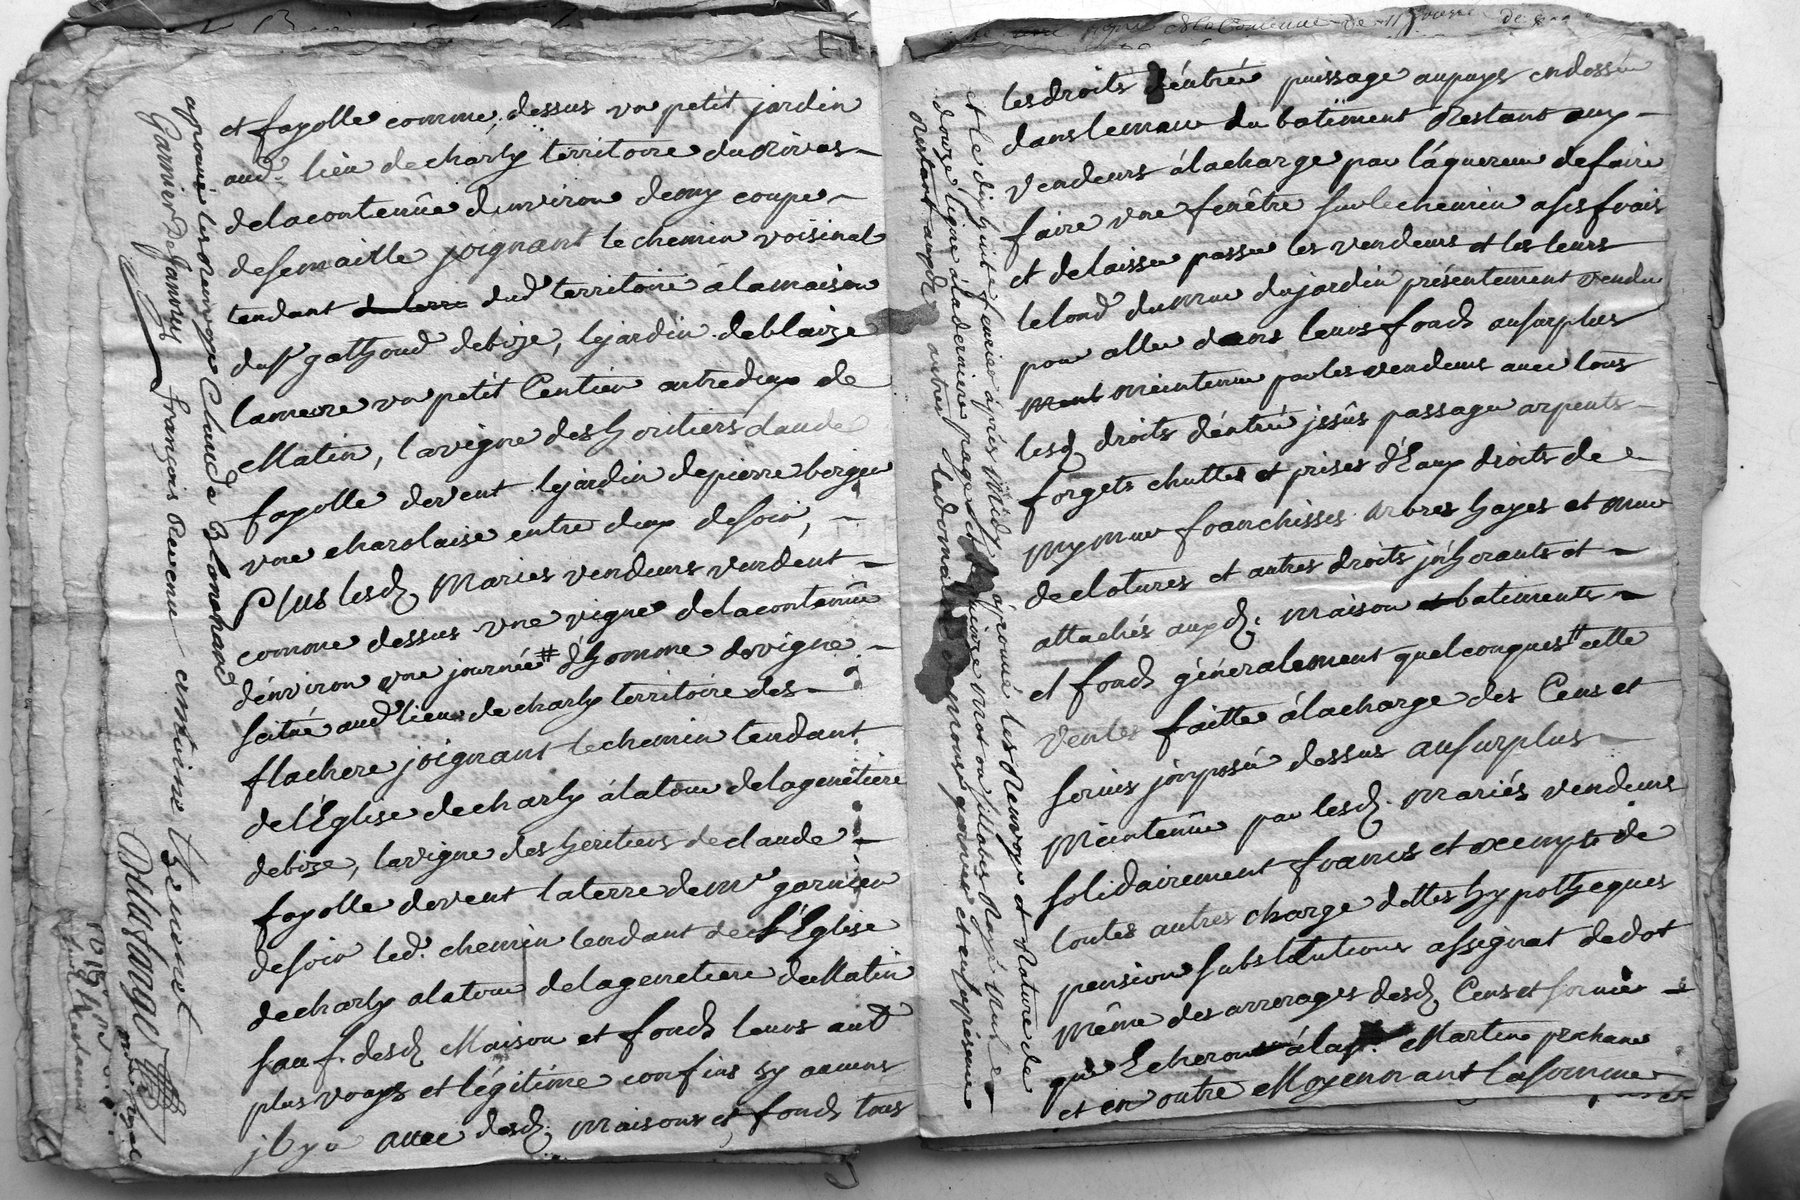 et fayolle comme dessus un petit jardin
aud. lieu de charly territoire du
de la contenüe d'environ demy coupe
de semaille joignant le chemin voisinal
tendant dud territoire à la maison
du sr gathoud de bize, le jardin de blaize
un petit Centier entredeux de
Matin, la vigne des heritiers claude
fayolle de vent le jardin de pierre
une charolaise entre deux de soir,
Plus lesd. Mariés vendeurs vendent
comme dessus une vigne de la contenüe
d'énviron une journée # d'homme de vigne
scitué aud lieu de charly territoire des
flachere joignant le chemin tendant
de l'Eglise de charly à la tour de la genetiere
de bize, la vigne des heritiers de claude
fayolle de vent la terre de mr garnier
de soir led. chemin tendant de l'Eglise
de charly a la tour de la genetiere de Matin
sauf desd. Maison et fonds leurs autt
plus vrays et légitime confins sy aucuns
il y a avec desd. maisons et fonds tous
aprouvé les renvoye Claude Blanchard
Garnier De Janvry françois Revenu antoine thevenet
Delafarge
les droits d'éntrée puissage au puys endossé
dans le mur du batiment Restant aux
Vendeurs à la charge par l'aquereur de faire
faire une fenêtre sur le chemin a ses frais
et de laisser passer les vendeurs et les leurs
le lond du mur du jardin présentement vendu
pour aller dans leurs fonds au surplus
meintenu par les vendeurs avec tous
lesd. droits d'éntrée issüs passage arpents
forgets chuttes et prises d'Eaux droits de
mymur franchisses arbres hayes et mur
de clotures et autres droits inhérants et
attachés auxd. maison batiments
et fonds généralement quelconques # cette
Vente faitte à la charge des Cens et
servis imposés dessus au surplus
Meintenüe par lesd. mariés vendeurs
solidairement francs et exempts de
toutes autres charge dettes hypotheques
pension substitutions assignat de dot
même des arrerages desd. Cens et servis
qui Echeront à la st. Martin prochaine
et en outre Moyennant la somme
et le dix huit fevrier après Midy aprouvé les Renvoye et Rature de
douze ligne à la derniere page
Restant